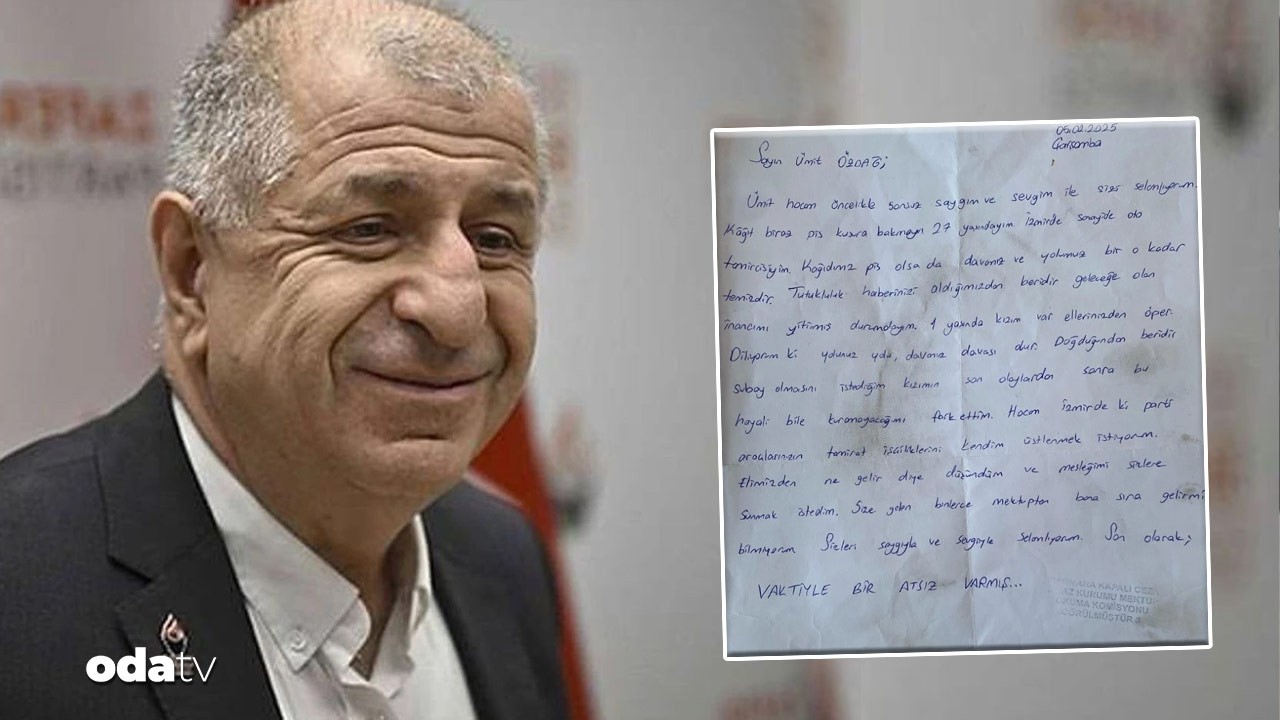 05.02.2025
Çarşamba
Sayın Ümit ÖZDAĞ;
Ümit hocam öncelikle sonsuz saygım ve sevgim ile sizi selamlıyorum.
Kâğıt biraz pis kusura bakmayın 27 yaşındayım İzmirde sanayide oto
tamircisiyim. Kağıdımız pis olsa da davanız ve yolunuz bir o kadar
temizdir. Tutukluluk haberinizi aldığımızdan beridir geleceğe olan
inancımı yitirmiş durumdayım. 1 yaşında kızım var ellerinizden öper.
Diliyorum ki yolunuz yolu, davanız davası olur. Doğduğundan beridir
subay olmasını istediğim kızımın son olaylardan sonra bu
hayali bile kuramayacağımı fark ettim. Hocam İzmirde ki parti
araçlarınızın tamirat işçiliklerini kendim üstlenmek istiyorum.
Elimizden ne gelir diye düşündüm ve mesleğimi sizlere
Sunmak istedim. Size gelen binlerce mektuptan bana sıra gelirmi
bilmiyorum Sizleri saygıyla ve sevgiyle selamlıyorum. Son olarak;
VAKTİYLE BİR ATSIZ VARMIŞ...
KAPALI CEZ
KURUMU MEKTU
KOMİSYONU
GÖRÜLMÜŞTÜR
odatv